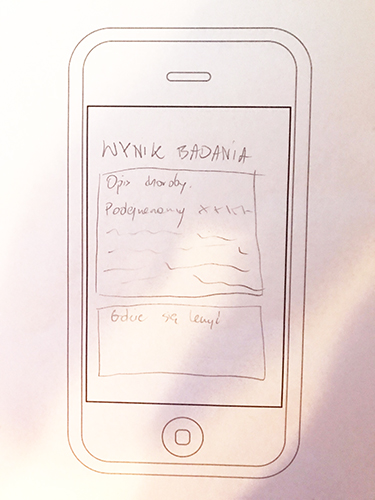 WYNIK BADANIA
Opis choroby.
Podejrzewamy
Gdzie się leczyć